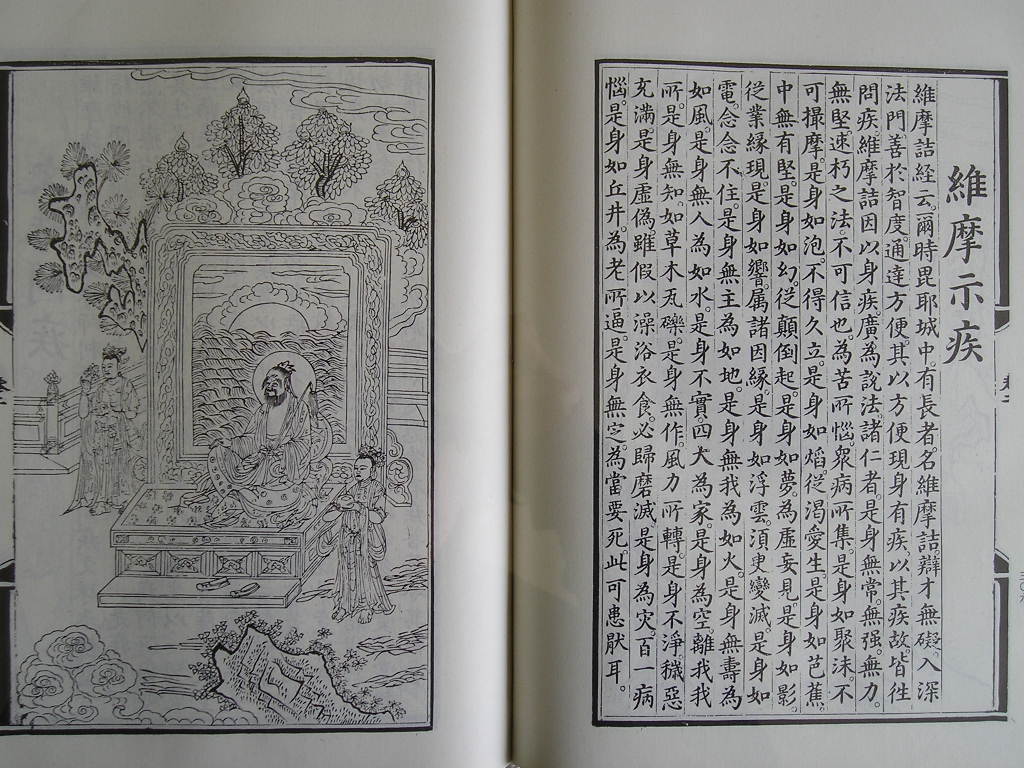 維摩示疾
維摩詰経云。爾時毘耶城中。有長者名維摩詰。辯才無礙。入深
法門。善於智度。通達方便。其以方便。現身有疾。以其疾故。皆徃
問疾。維摩詰因以身疾。廣為說法。諸仁者。是身無常。無强。無力。
無堅。速朽之法。不可信也。為苦所惱。衆病所集。是身如聚沫。不
可撮摩。是身如泡。不得久立。是身如焰。從渴愛生。是身如芭蕉。
中無有堅。是身如幻。從顛倒起。是身如夢。為虛妄見。是身如影。
從業緣現。是身如響。屬諸因緣。是身如浮雲。須臾變滅。是身如
電。念念不住。是身無主。為如地。是身無我。為如火。是身無壽。為
如風。是身無人。為如水。是身不實。四大為家。是身為空。離我我
所。是身無知。如草木瓦礫。是身無作。風力所轉。是身不淨。穢惡
充滿。是身虛偽。雖假以澡浴衣食。必歸磨滅。是身為灾。百一病
惱。是身如丘井。為老所逼。是身無定。為當要死。此可患厭耳。